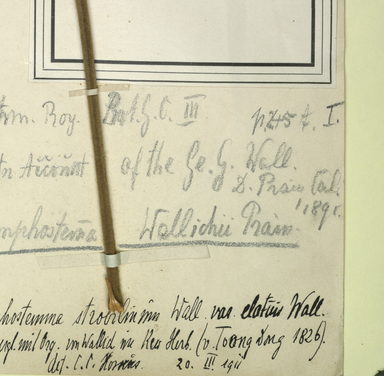 Ann. Roy. Bot. G. C. III p. 245 t. I.
An Account of the Ge. G. Wall.
D. Prain Cal. 1891.
mphostemma Wallichii Prain.
hostemma strobilinum Wall. var. elatius Wall.
mit Org. von Wallich im Kew Herb. (v. Toong Dong 1826).
20. III 1911